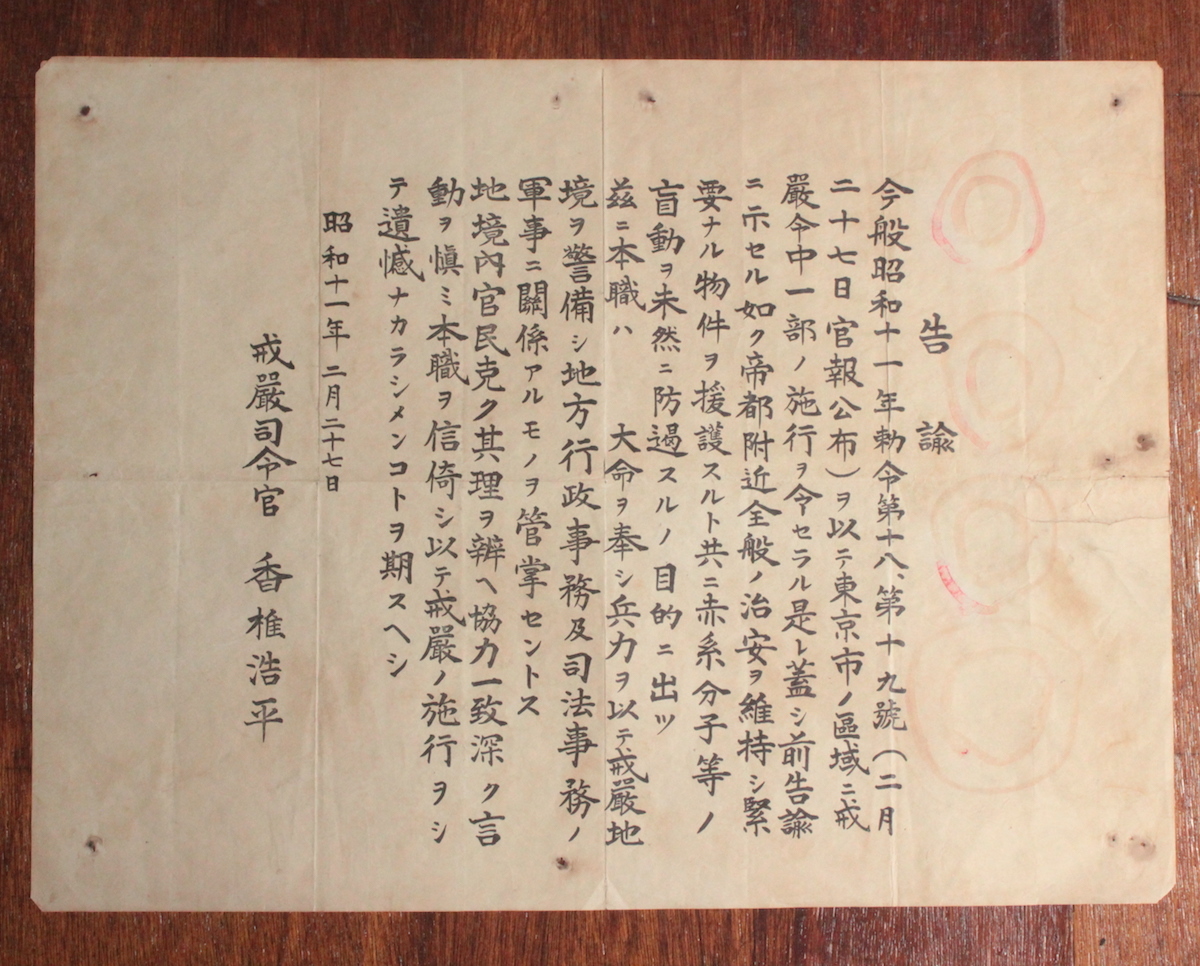 告諭
今般昭和十一年勅令第十八、第十九號(二月
二十七日官報公布)ヲ以テ東京市ノ區域ニ戒
嚴令中一部ノ施行ヲ令セラル是レ蓋シ前告諭
ニ示セル如ク帝都附近全般ノ治安ヲ維持シ緊
要ナル物件ヲ援護スルト共ニ赤系分子等ノ
盲動ヲ未然ニ防遏スルノ目的ニ出ツ
玆ニ本職ハ 大命ヲ奉シ兵力ヲ以テ戒嚴地
境ヲ警備シ地方行政事務及司法事務ノ
軍事ニ關係アルモノヲ管掌セントス
地境內官民克ク其理ヲ辨ヘ協力一致深ク言
動ヲ愼ミ本職ヲ信倚シ以テ戒嚴ノ施行ヲシ
テ遺憾ナカラシメンコトヲ期スヘシ
昭和十一年二月二十七日
戒嚴司令官 香椎浩平